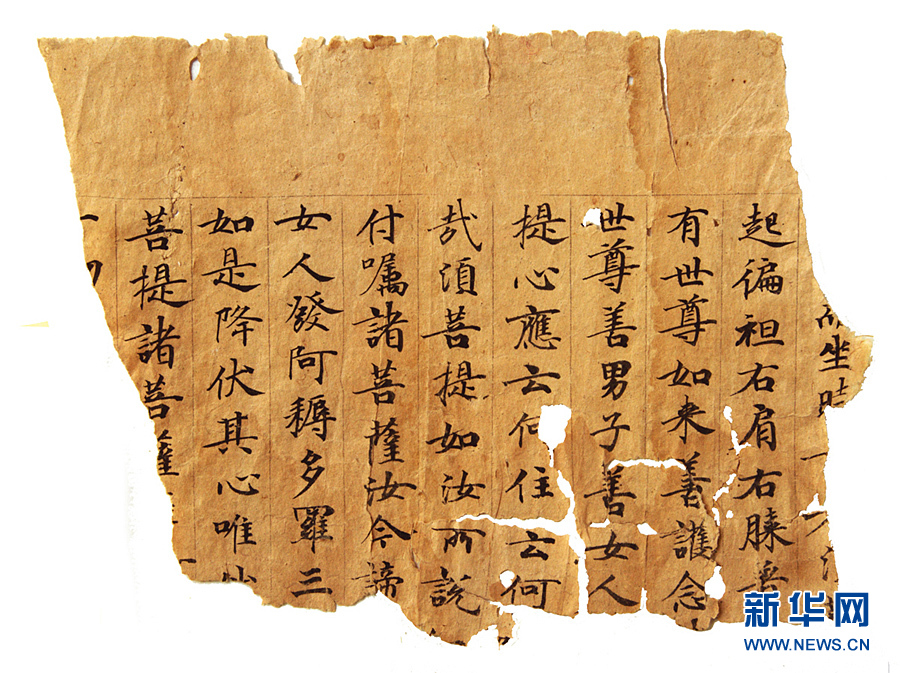 坐
起徧袒右肩右膝
有世尊如来善護念
世尊善男子善女人
提心應云何住云何
㢤須菩提如汝所說
付囑諸菩薩汝今諦
女人發阿耨多羅三
如是降伏其心唯
菩提諸菩薩
一切
新华网
WWW.NEWS.CN